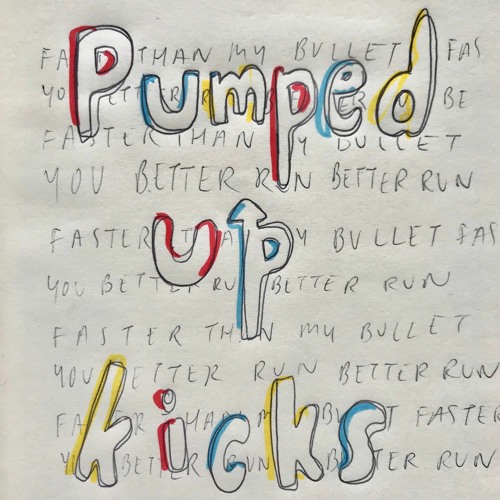 Pumped
up
kicks
THAN MY BULLET FAS
BE
FASTER THAN MY BULLET
YOU BETTER RUN BETTER RUN
FASTER THAN MY BULLET FAS
YOU BETTER RUN BETTER RUN
FASTER THAN MY BULLET
YOU BETTER RUN BETTER RUN
FASTER
BETTER RUN